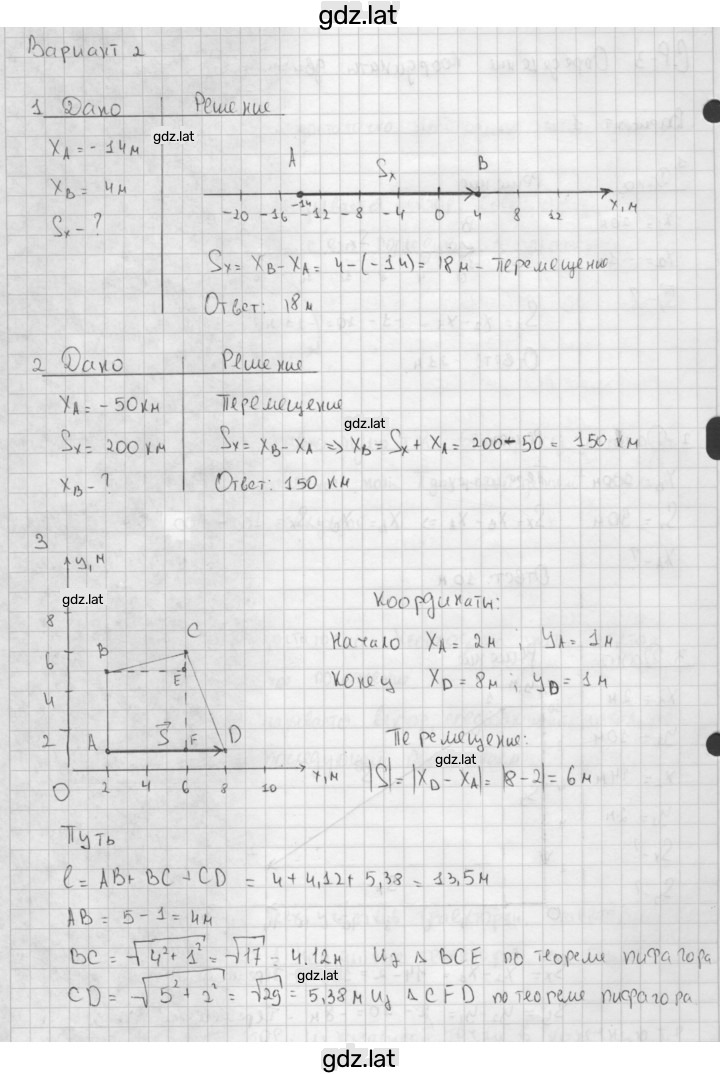 gdz.lat
Вариант 2
1 Дано Решение
gdz.lat
XA = - 14м
XB = 4м
Sx - ?
A Sx B
-20 -16 -14 -12 -8 -4 0 4 8 12 x, м
Sx = XB - XA = 4 - (-14) = 18м - перемещение
Ответ: 18 м
2 Дано Решение
XA = - 50 км Перемещение
gdz.lat
Sx = 200 км Sx = XB - XA => XB = Sx + XA = 200 - 50 = 150 км
XB - ? Ответ: 150 км
3
y, м
gdz.lat
8
6
4
2
0 2 4 6 8 10 x, м
A B C D E F S
Координаты:
Начало XA = 2м ; yA = 1м
Конец XD = 8м ; yD = 1м
Перемещение:
gdz.lat
|S| = |XD - XA| = |8 - 2| = 6м
Путь
l = AB + BC + CD = 4 + 4,12 + 5,38 = 13,5м
AB = 5 - 1 = 4м
BC = √4² + 1² = √17 = 4.12м Из Δ BCE по теореме пифагора
gdz.lat
CD = √5² + 2² = √29 = 5,38 м Из Δ CFD по теореме пифагора
gdz.lat